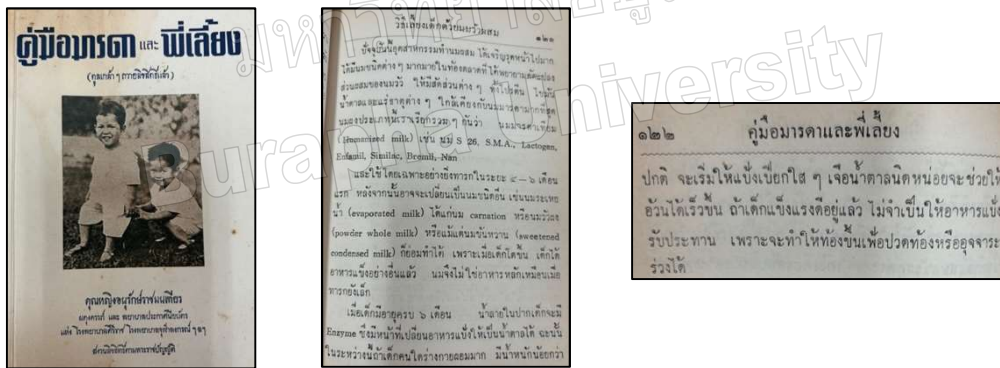 คู่มือมารดา และ พี่เลี้ยง
(ทูลเกล้า ฯ ถวายลิขสิทธิ์แล้ว)
คุณหญิงอนุรักษ์ราชมนเทียร
ผดุงครรภ์ และ พยาบาลประกาศนียบัตร
แห่ง โรงพยาบาลศิริราช โรงพยาบาลจุฬาลงกรณ์ ฯลฯ
สงวนลิขสิทธิ์ตามพระราชบัญญัติ
วิธีเลี้ยงเด็กด้วยนมวัวผสม ๑๒๑
ปัจจุบันนี้อุตสาหกรรมทำนมผสม ได้เจริญรุดหน้าไปมาก
ได้มีนมชนิดต่าง ๆ มากมายในท้องตลาดที่ได้พยายามดัดแปลง
ส่วนผสมของนมวัว ให้มีสัดส่วนต่าง ๆ ทั้งโปรตีน ไขมัน
น้ำตาลและแร่ธาตุต่าง ๆ ใกล้เคียงกับนมมารดามากที่สุด
นมผงประเภทนี้เราเรียกรวม ๆ กันว่า นมผงดัดแปลง
(Humanized milk) เช่น นม S 26, S.M.A., Lactogen,
Enfamil, Similac, Bremil, Nan
และใช้โดยเฉพาะอย่างยิ่งทารกในระยะ ๔ – ๖ เดือน
แรก หลังจากนั้นอาจจะเปลี่ยนเป็นนมชนิดอื่น เช่นนมระเหย
น้ำ (evaporated milk) ได้แก่นม carnation หรือนมวัวผง
(powder whole milk) หรือแม้แต่นมข้นหวาน (sweetened
condensed milk) ก็ย่อมทำได้ เพราะเมื่อเด็กโตขึ้น เด็กได้
อาหารแข็งอย่างอื่นแล้ว นมจึงไม่ใช่อาหารหลักเหมือนเมื่อ
ทารกยังเล็ก
เมื่อเด็กมีอายุครบ ๖ เดือน น้ำลายในปากเด็กจะมี
Enzyme ซึ่งมีหน้าที่เปลี่ยนอาหารแป้งให้เป็นน้ำตาลได้ ฉะนั้น
ในระหว่างนี้ถ้าเด็กคนใดร่างกายผอมมาก มีน้ำหนักน้อยกว่า
๑๒๒ คู่มือมารดาและพี่เลี้ยง
ปกติ จะเริ่มให้แป้งเปียกใส ๆ เจือน้ำตาลนิดหน่อยจะช่วยให้
อ้วนได้เร็วขึ้น ถ้าเด็กแข็งแรงดีอยู่แล้ว ไม่จำเป็นให้อาหารแป้ง
รับประทาน เพราะจะทำให้ท้องขึ้นเฟ้อปวดท้องหรืออุจจาระ
ร่วงได้
Burapha University